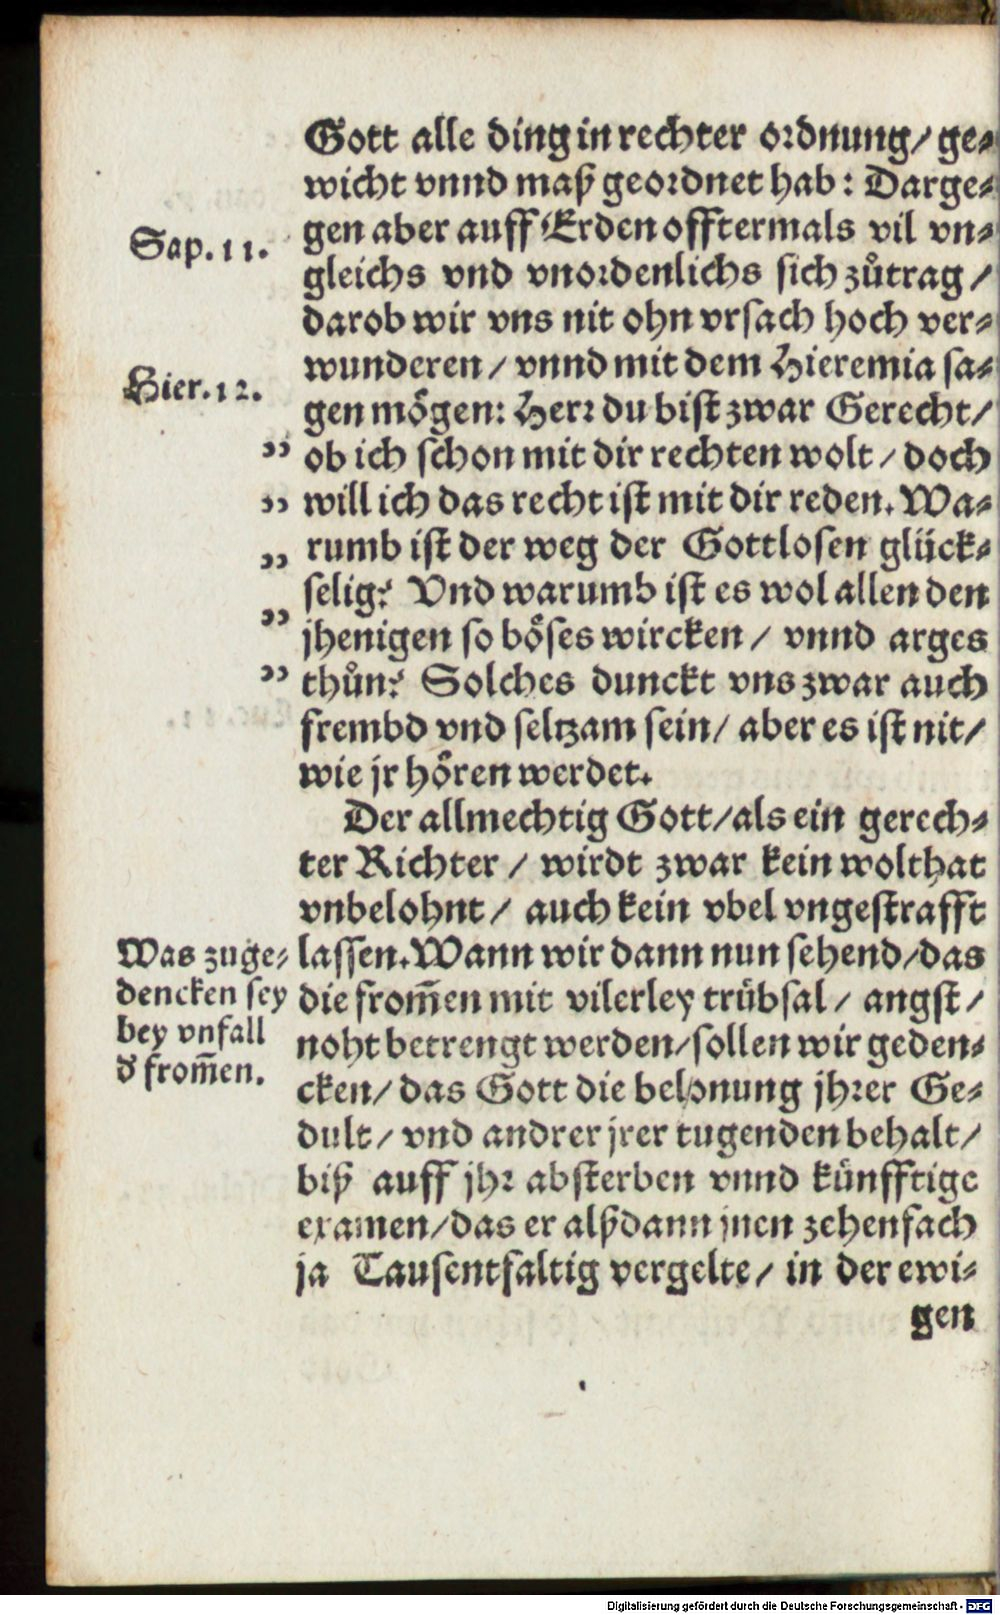 Gott alle ding in rechter ordnung/ ge-
wicht vnnd maß geordnet hab: Darge-
Sap. 11.
gen aber auff Erden offtermals vil vn-
gleichs vnd vnordenlichs sich zůtrag/
darob wir vns nit ohn vrsach hoch ver-
wunderen/ vnnd mit dem Hieremia sa-
Hier. 12.
gen mögen: Herr du bist zwar Gerecht/
” ob ich schon mit dir rechten wolt/ doch
” will ich das recht ist mit dir reden. Wa-
” rumb ist der weg der Gottlosen glück-
” selig? Vnd warumb ist es wol allen den
jhenigen so böses wircken/ vnnd arges
” thůn? Solches dunckt vns zwar auch
frembd vnd seltzam sein/ aber es ist nit/
wie jr hören werdet.
Der allmechtig Gott/als ein gerech-
ter Richter/ wirdt zwar kein wolthat
vnbelohnt/ auch kein vbel vngestrafft
lassen. Wann wir dann nun sehend/das
die from̃en mit vilerley trübsal/ angst/
noht betrengt werden/sollen wir geden-
cken/ das Gott die belonung jhrer Ge-
dult/ vnd andrer jrer tugenden behalt/
biß auff jhr absterben vnnd künfftige
examen/das er alßdann jnen zehenfach
ja Tausentfaltig vergelte/ in der ewi-
gen
Was zuge-
dencken sey
bey vnfall
d̓ from̃en.
Digitalisierung gefördert durch die Deutsche Forschungsgemeinschaft - DFG